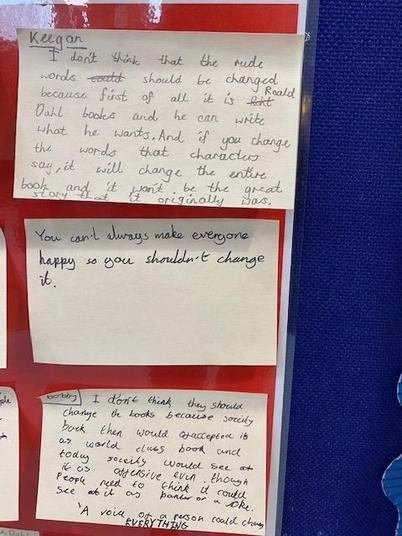 Keegan
I don't think that the rude
words could should be changed
because first of all it is Roald
Dahl books and he can write
what he wants. And if you change
the words that characters
say, it will change the entire
book and it won't be the great
story that it originally was.
You can't always make everyone
happy so you shouldn't change
it.
I don't think they should
change the books because society
back then would accepted it
as world class book and
today society would see at
it is offensive even though
People need to think it could
see at it as banter or a joke.
'A voice of a person could change
EVERYTHING